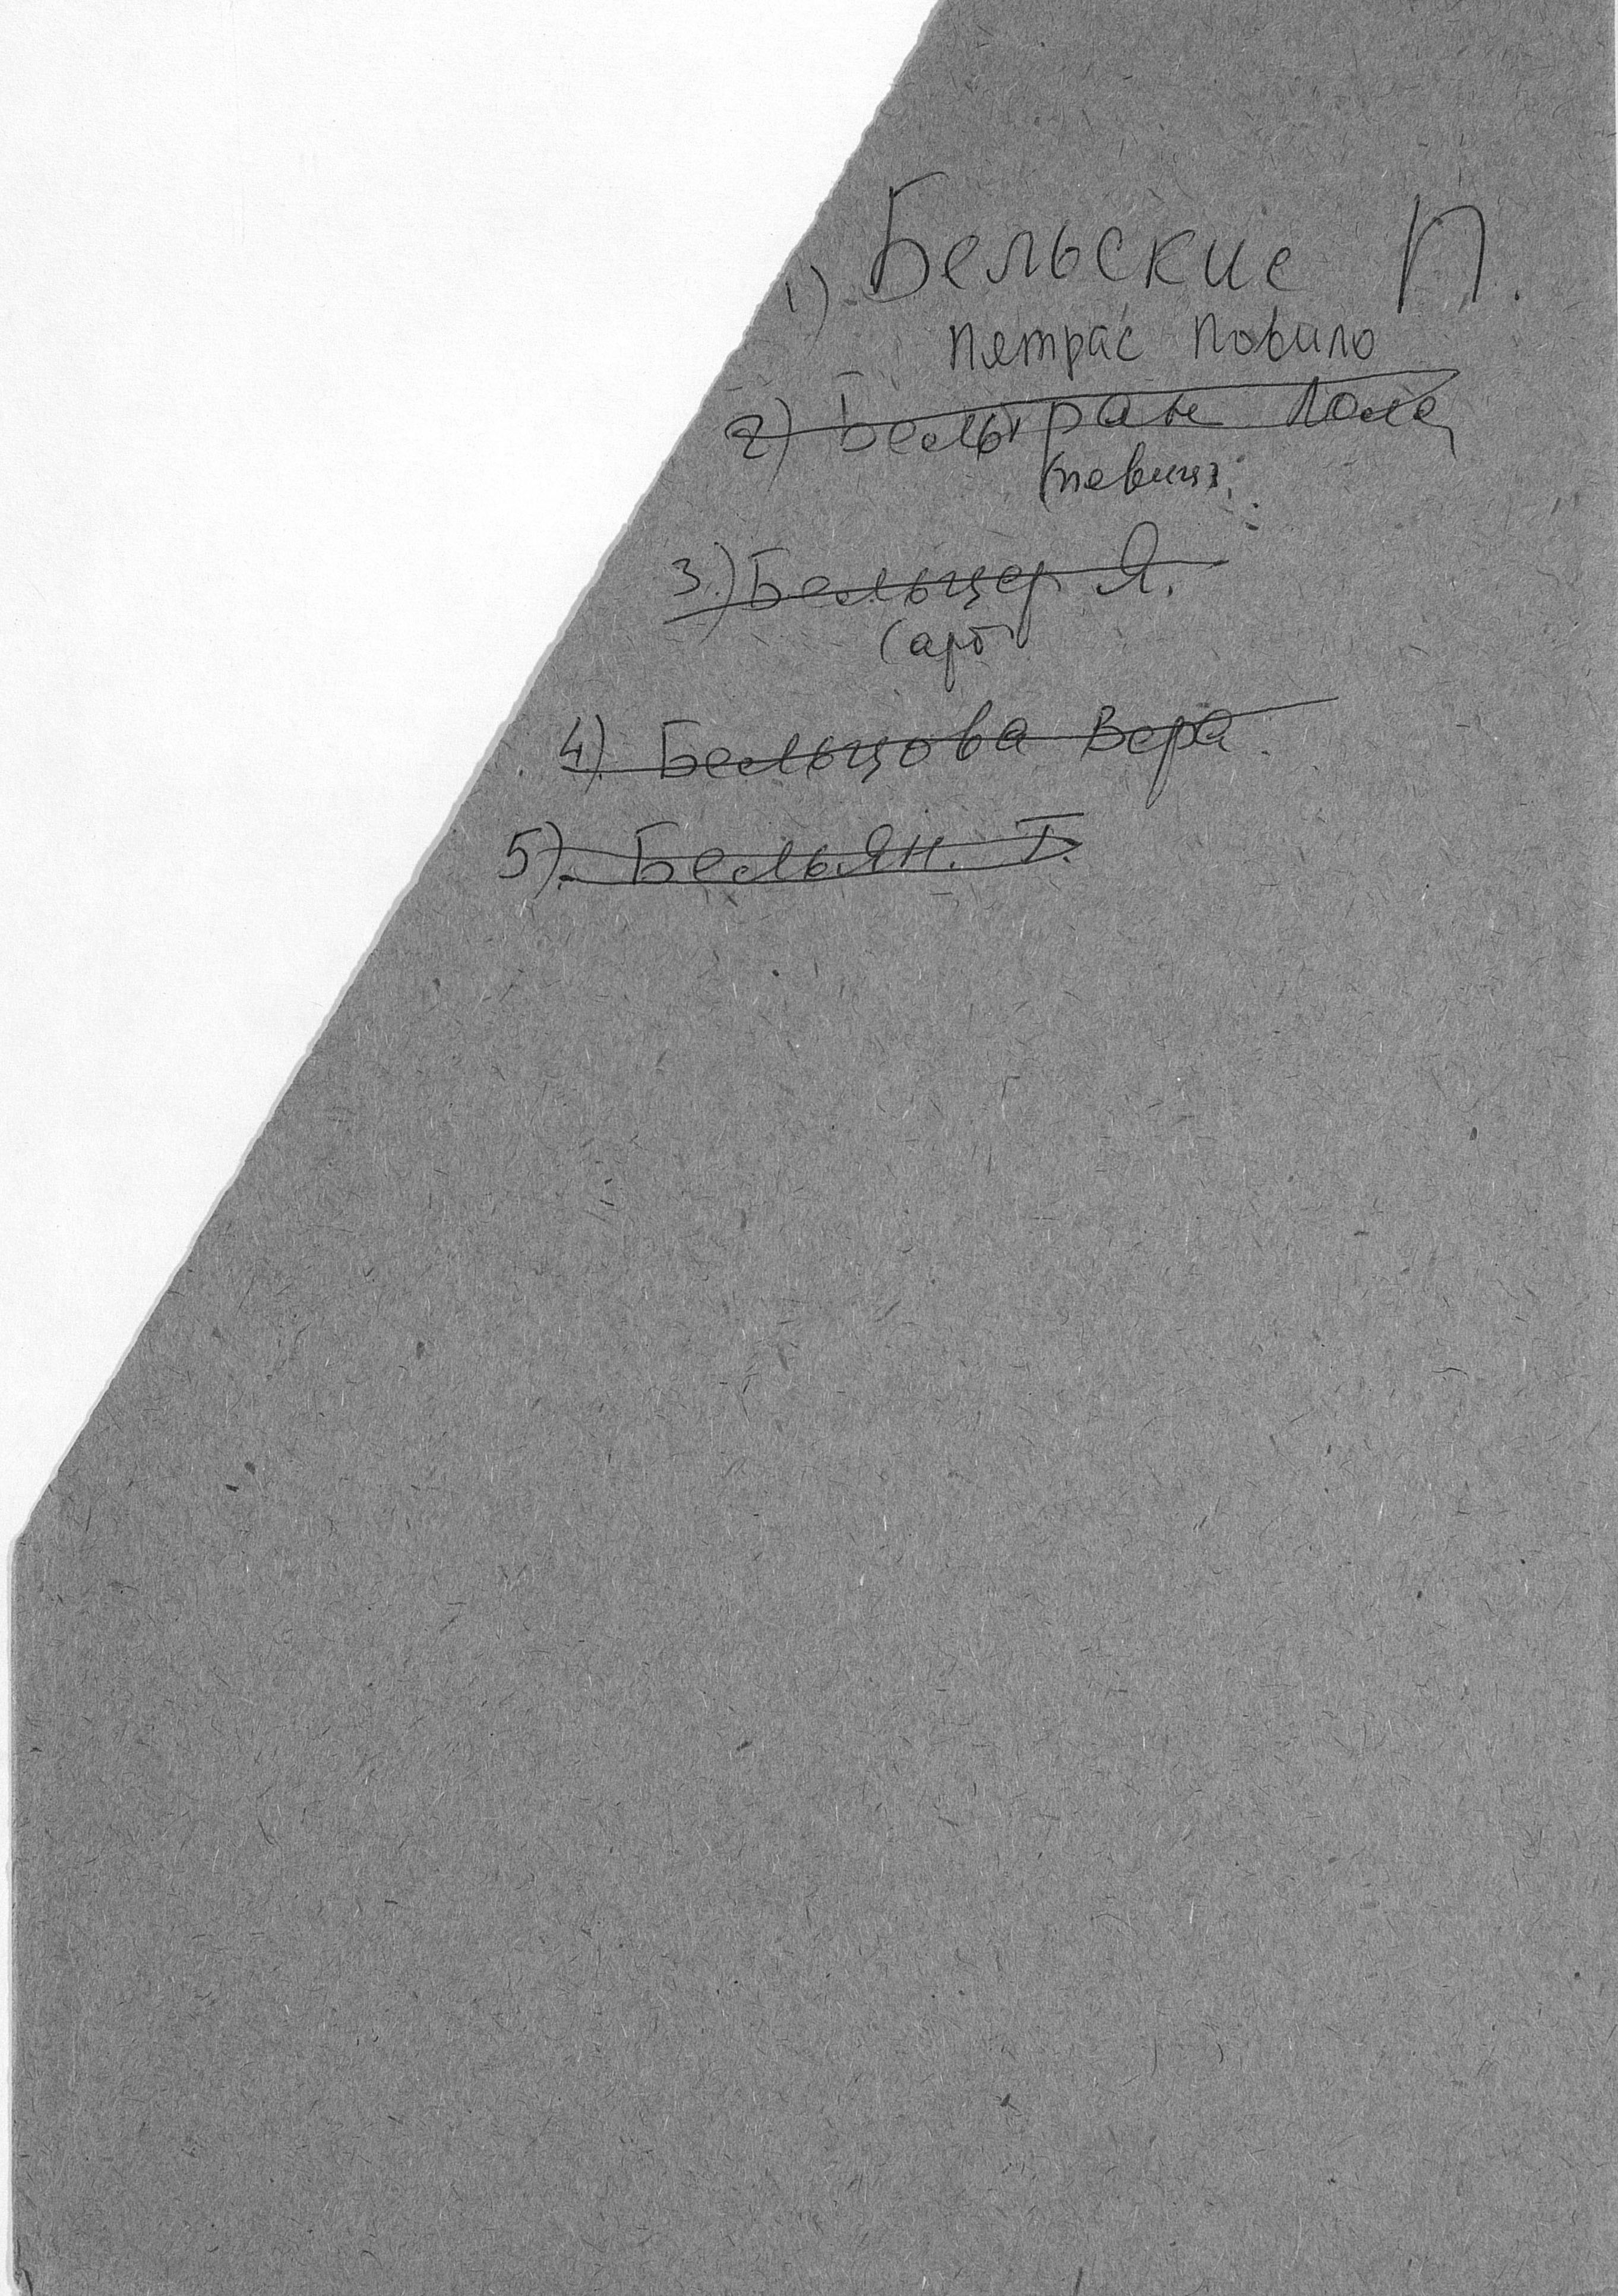 1) Бельские П.
Пятрас Повило
2) Бельтран Лола
(певиц
3.) Бельцер Я.
(арт
4) Бельцова Вера
5). Бельян. Г.